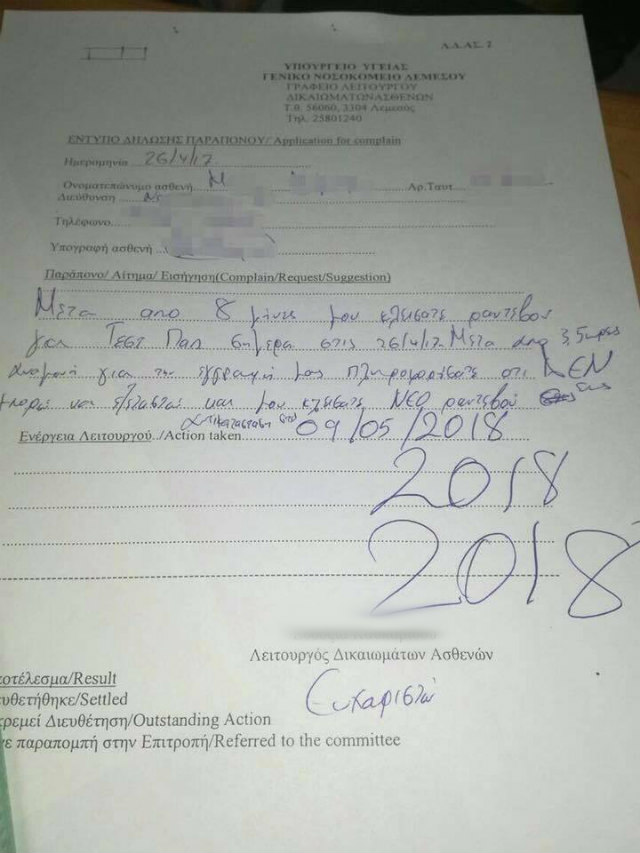 Λ.Δ.ΑΣ. 2
ΥΠΟΥΡΓΕΙΟ ΥΓΕΙΑΣ
ΓΕΝΙΚΟ ΝΟΣΟΚΟΜΕΙΟ ΛΕΜΕΣΟΥ
ΓΡΑΦΕΙΟ ΛΕΙΤΟΥΡΓΟΥ
ΔΙΚΑΙΩΜΑΤΩΝΑΣΘΕΝΩΝ
Τ.Θ. 56060, 3304 Λεμεσός
Τηλ. 25801240
ΕΝΤΥΠΟ ΔΗΛΩΣΗΣ ΠΑΡΑΠΟΝΟΥ/ Application for complain
Ημερομηνία 26/4/17
Ονοματεπώνυμο ασθενή Μ Αρ.Ταυτ.
Διεύθυνση
Τηλέφωνο
Υπογραφή ασθενή
Παράπονο/ Αίτημα/ Εισήγηση(Complain/Request/Suggestion)
Μετα απο 8 μηνες μου κλεισατε ραντεβου
για ΤΕΣΤ Παπ σημερα στις 26/4/17 Μετα απο 3,5ωρες
αναμονη για την εγγραφη μας πληροφορησατε οτι ΔΕΝ
μπορω να εξεταστω και μου κλεισατε ΝΕΟ ραντεβου στις
Ενέργεια Λειτουργού../Action taken αντικατασταση 09/05/2018
2018
2018
Λειτουργός Δικαιωμάτων Ασθενών
οτέλεσμα/Result
υθετήθηκε/Settled
Ευχαριστώ
ρεμεί Διευθέτηση/Outstanding Action
νε παραπομπή στην Επιτροπή/Referred to the committee